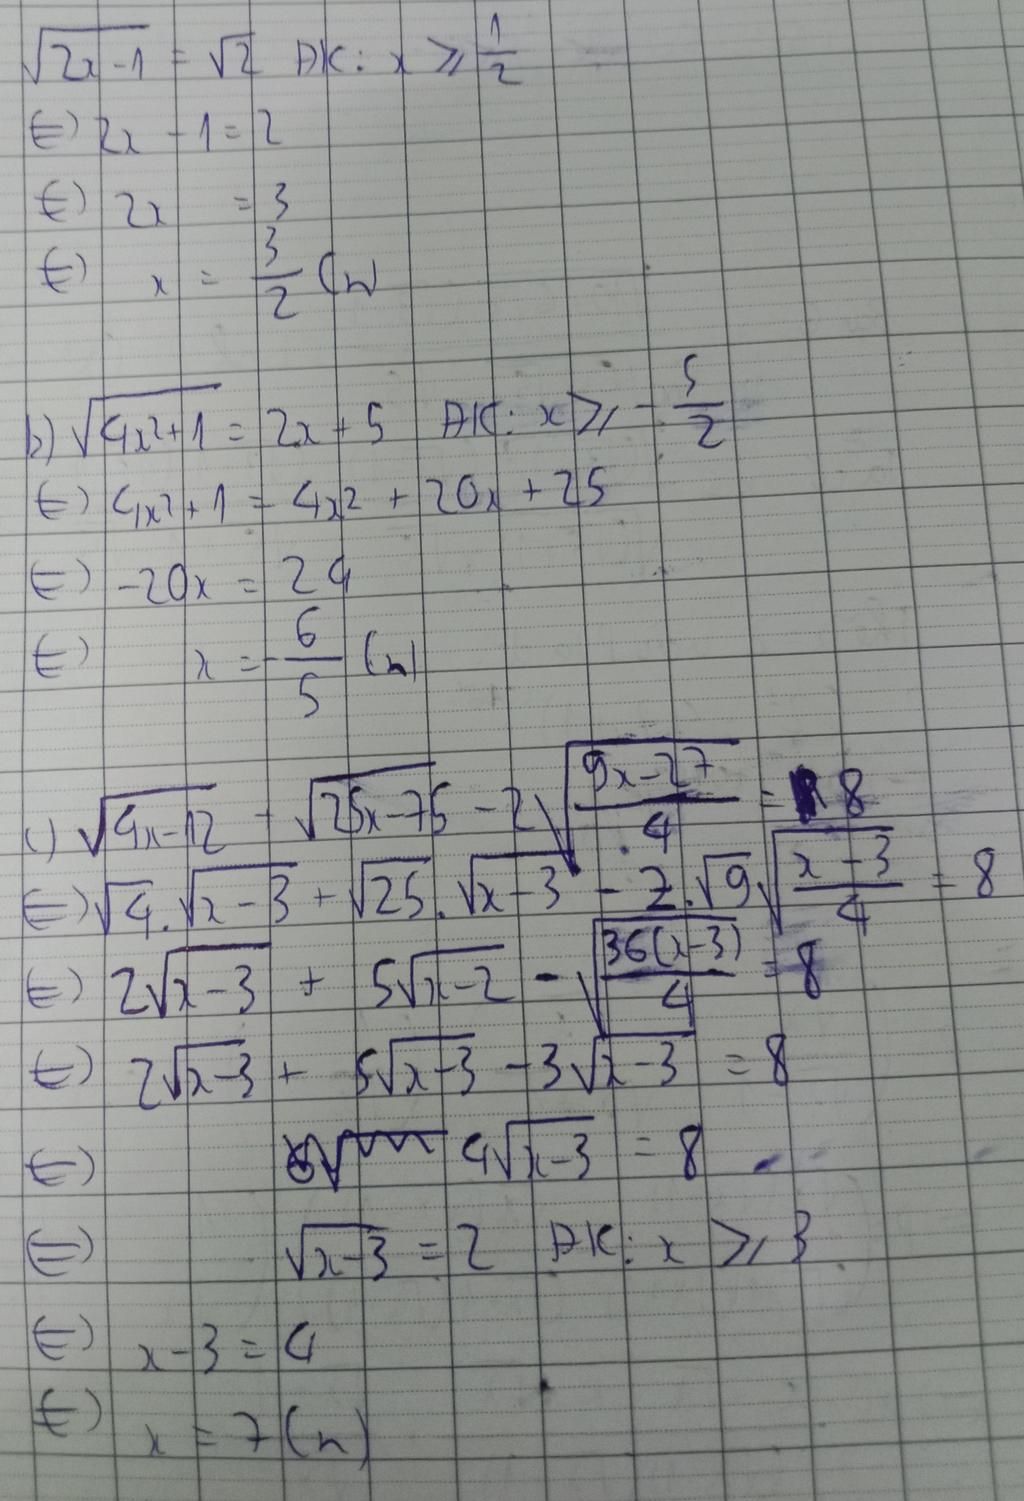 √(2x-1) = √2 ĐK: x ⩾ 1/2
⇔) 2x - 1 = 2
⇔) 2x = 3
⇔) x = 3/2 (n)
b) √(4x²+1) = 2x + 5 ĐK: x ⩾ -5/2
⇔) 4x²+1 = 4x² + 20x + 25
⇔) -20x = 24
⇔) x = -6/5 (n)
c) √(4x-12) + √(25x-75) - 2√((9x-27)/4) = 8
⇔) √4.√(x-3) + √25.√(x-3) - 2.√9√((x-3)/4) = 8
⇔) 2√(x-3) + 5√(x-2) - √(36(x-3)/4) = 8
⇔) 2√(x-3) + 5√(x-3) - 3√(x-3) = 8
⇔) 4√(x-3) = 8
⇔) √(x-3) = 2 ĐK: x ⩾ 3
⇔) x-3 = 4
⇔) x = 7 (n)